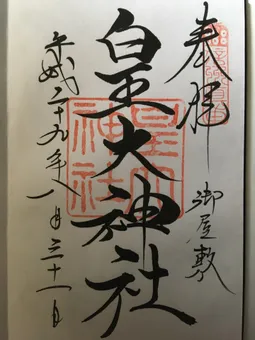 奉拝
御屋敷
皇大神社
皇大
神社
平成二十九年八月三十一日